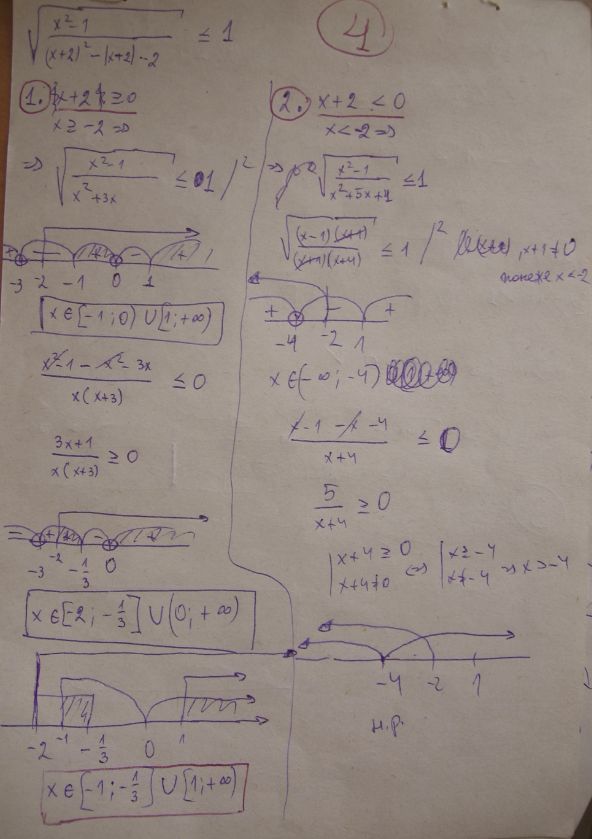 √((x²-1)/((x+2)²-|x+2|-2)) ≤ 1
4
1. x+2 ≥ 0
x ≥ -2 ⇒
⇒ √((x²-1)/(x²+3x)) ≤ 1 /²
+ - + - +
-3 -2 -1 0 1
x ∈ [-1; 0) ∪ [1; +∞)
(x²-1-x²-3x)/(x(x+3)) ≤ 0
(3x+1)/(x(x+3)) ≥ 0
- + - +
-3 -2 -1/3 0
x ∈ [-2; -1/3] ∪ (0; +∞)
-2 -1 -1/3 0 1
x ∈ [-1; -1/3] ∪ [1; +∞)
2. x+2 < 0
x < -2 ⇒
⇒ √((x²-1)/(x²+5x+4)) ≤ 1
√((x-1)(x+1)/((x+1)(x+4))) ≤ 1 /² , x+1≠0
понеже x<-2
+ - +
-4 -2 1
x ∈ (-∞; -4)
(x-1-x-4)/(x+4) ≤ 0
5/(x+4) ≥ 0
|x+4 ≥ 0 ⇔ |x ≥ -4 ⇒ x > -4
|x+4≠0 |x≠-4
-4 -2 1
н.р.